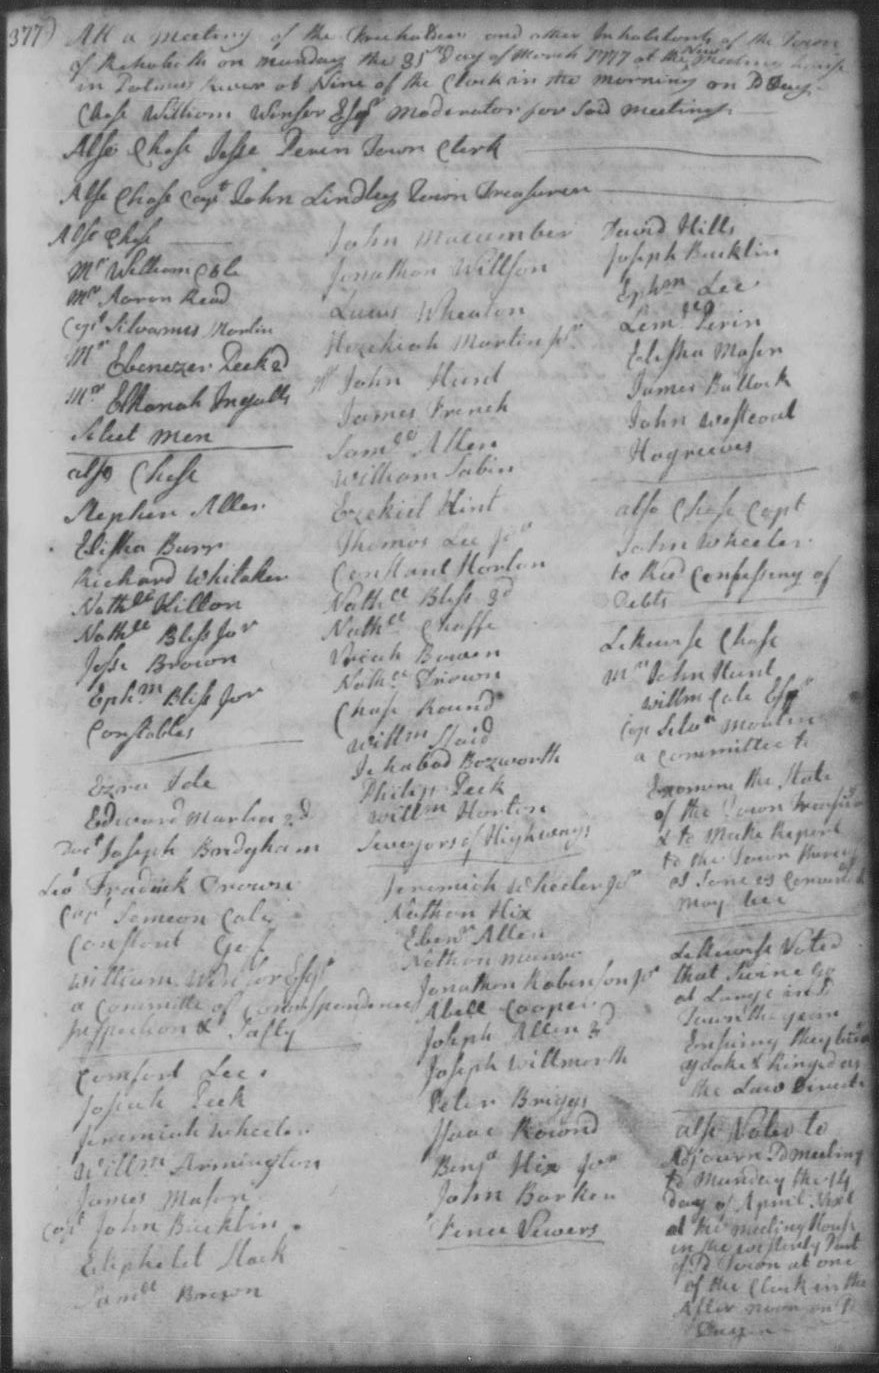 377)
Att a meeting of the Freeholders and other Inhabitants of the Town
of Rehoboth on munday the 31st Day of March 1777 at the New Meeting house
in Palmers River at Nine of the Clock in the morning on sd Day
Chose William Winsor Esqr moderator for said meeting
Also Chose Jesse Perrin Town Clerk
Also Chose Capt John Lindley Town Treasurer
Also Chose
Mr William Cole
Mr Aaron Read
Capt Silvanus Martin
Mr Ebenezer Peck 2d
Mr Elkanah Ingalls
Select men
also Chose
Stephen Allen
Elisha Burr
Richard Whitaker
Nathll Hillon
Nathll Bliss Jor
Jesse Brown
Ephm Bliss Jor
Constables
Ezra Ide
Edward Martin 2d
Doct Joseph Bridgham
Leo Fradrick Drown
Capt Simeon Cole
Constant
William Winsor Esqr
a Committe of Correspondence
Inspection & Safty
Comfort Lee
Josiah Peck
Jeremiah Wheeler
Willm Armington
James Mason
Capt John Bucklin
Eliphelet Slack
Samll Brown
John Macumber
Jonathan Willson
Lucus Wheaton
Hezekiah Martin Jor
John Hunt
James French
Samll Allen
William Sabin
Ezekiel Hint
Thomas Lee Jor
Constant Horton
Nathll Bliss 3d
Nathll Chaffe
Uriah Bowen
Nathll Drown
Chase Round
Willm Slaid
Ichabod Bozworth
Philip Peck
Willm Horton
Survejors of Highways
Jeremiah Wheeler Jor
Nathan Hix
Ebenr Allen
Nathan munro
Jonathan Robinson Jor
Abell Cooper
Joseph Allen 2d
Joseph Willmorth
Peter Briggs
Isaac Round
Benja Hix Jor
John Barken
Fence Vewers
David Hills
Joseph Bucklin
Ephm Lee
Lemll Perin
Elisha Mason
James Bullock
John Westcoat
Hogreeves
also Chose Capt
John Wheeler
to Recd Confessing of
Debts
Likewise Chose
Mr John Hunt
Willm Cole Esqr
Cap Silvn Martin
a Committee to
Examine the State
of the Town Treasury
& to Make Report
to the Town thereof
as Soone as Convenient
may bee
Likewise Voted
that Swine Go
at Large in sd
Town the year
Ensuing they being
yoaked & Ringed as
the Law Directs
also Voted to
Adjourn sd meeting
to munday the 14
day of April Next
at the meeting House
in the westerly Part
of sd Town at one
of the Clock in the
After noon on sd
Day